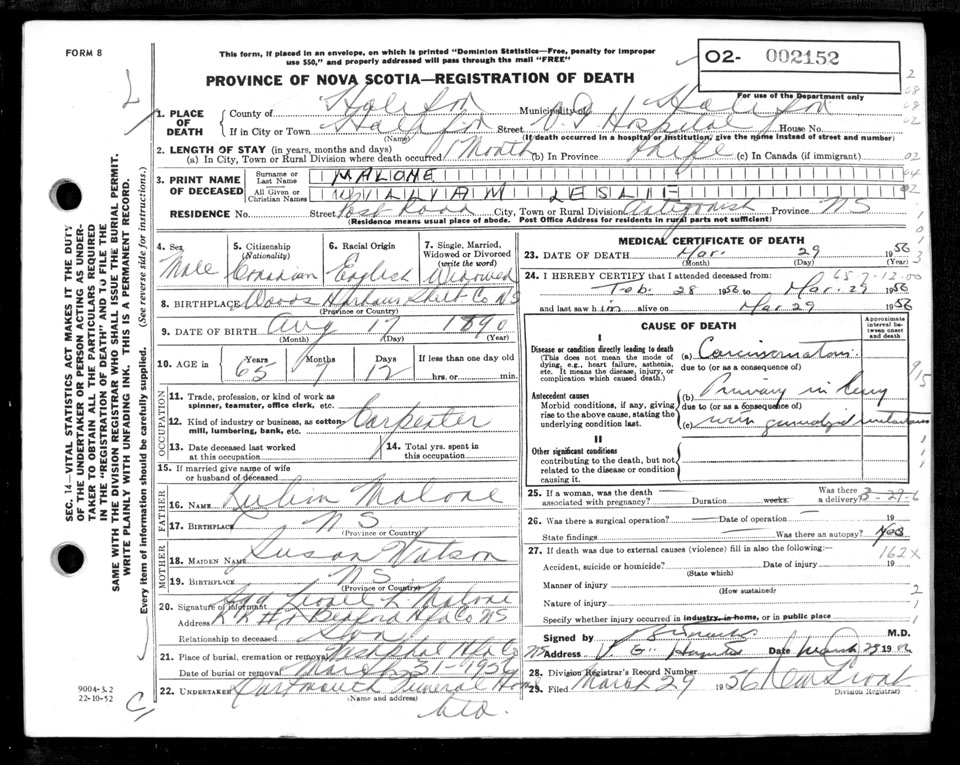 FORM 8
This form, if placed in an envelope, on which is printed "Dominion Statistics—Free, penalty for improper
use $50," and properly addressed will pass through the mail "FREE"
O2- 002152
For use of the Department only
PROVINCE OF NOVA SCOTIA—REGISTRATION OF DEATH
1. PLACE OF DEATH
County of Halifax Municipality of Halifax
If in City or Town Halifax Street V.G. Hospital House No.
(Name) (If death occurred in a hospital or institution, give the name instead of street and number)
2. LENGTH OF STAY (in years, months and days)
(a) In City, Town or Rural Division where death occurred 1 Month (b) In Province Life (c) In Canada (if immigrant)
3. PRINT NAME OF DECEASED
Surname or Last Name MALONE
All Given or Christian Names WILLIAM LESLIE
RESIDENCE No. Street Post Road City, Town or Rural Division Antigonish Province N S
(Residence means usual place of abode. Post Office Address for residents in rural parts not sufficient)
4. Sex Male
5. Citizenship (Nationality) Canadian
6. Racial Origin English
7. Single, Married, Widowed or Divorced (write the word) Widowed
8. BIRTHPLACE Woods Harbour Shel. Co N S
(Province or Country)
9. DATE OF BIRTH Aug 17 1890
(Month) (Day) (Year)
10. AGE in Years 65 Months 7 Days 12 If less than one day old
hrs. or min.
OCCUPATION
11. Trade, profession, or kind of work as
spinner, teamster, office clerk, etc.
12. Kind of industry or business, as cotton-
mill, lumbering, bank, etc. Carpenter
13. Date deceased last worked
at this occupation
14. Total yrs. spent in
this occupation
15. If married give name of wife
or husband of deceased
FATHER
16. NAME Malone
17. BIRTHPLACE N S
(Province or Country)
MOTHER
18. MAIDEN NAME Susan Watson
19. BIRTHPLACE N S
(Province or Country)
20. Signature of informant Malone
Address Bedford Hfx Co N S
Relationship to deceased Son
21. Place of burial, cremation or removal Westphal Hfx Co
Date of burial or removal March 31-1956
22. UNDERTAKER Dartmouth Funeral Home
(Name and address)
Ltd.
MEDICAL CERTIFICATE OF DEATH
23. DATE OF DEATH Mar. 29 1956
(Month) (Day) (Year)
65-7-12-00
24. I HEREBY CERTIFY that I attended deceased from:
Feb. 28 1956 to Mar. 29 1956
and last saw him alive on Mar 29 1956
CAUSE OF DEATH
Approximate interval between onset and death
I
Disease or condition directly leading to death
(This does not mean the mode of
dying, e.g., heart failure, asthenia,
etc. It means the disease, injury, or
complication which caused death.)
(a) Carcinomatosis.
due to (or as a consequence of)
Antecedent causes
Morbid conditions, if any, giving
rise to the above cause, stating the
underlying condition last.
(b) Primary in lung
due to (or as a consequence of)
(c) with generalized metastases
II
Other significant conditions
contributing to the death, but not
related to the disease or condition
causing it.
25. If a woman, was the death
associated with pregnancy? Duration weeks. Was there
a delivery?
3-29-6
26. Was there a surgical operation? Date of operation 19
State findings Was there an autopsy? Yes
27. If death was due to external causes (violence) fill in also the following:—
162x
Accident, suicide or homicide? Date of injury 19
(State which)
Manner of injury
(How sustained)
Nature of injury
Specify whether injury occurred in industry, in home, or in public place
Signed by M.D.
Address V. G. Hospital Date March 29 1956
28. Division Registrar's Record Number
29. Filed March 29 1956
Division Registrar
SEC. 14—VITAL STATISTICS ACT MAKES IT THE DUTY
OF THE UNDERTAKER OR PERSON ACTING AS UNDER-
TAKER TO OBTAIN ALL THE PARTICULARS REQUIRED
IN THE "REGISTRATION OF DEATH" AND TO FILE THE
SAME WITH THE DIVISION REGISTRAR WHO SHALL ISSUE THE BURIAL PERMIT.
WRITE PLAINLY WITH UNFADING INK. THIS IS A PERMANENT RECORD.
Every item of information should be carefully supplied. (See reverse side for instructions.)
9004-3.2
22-10-52